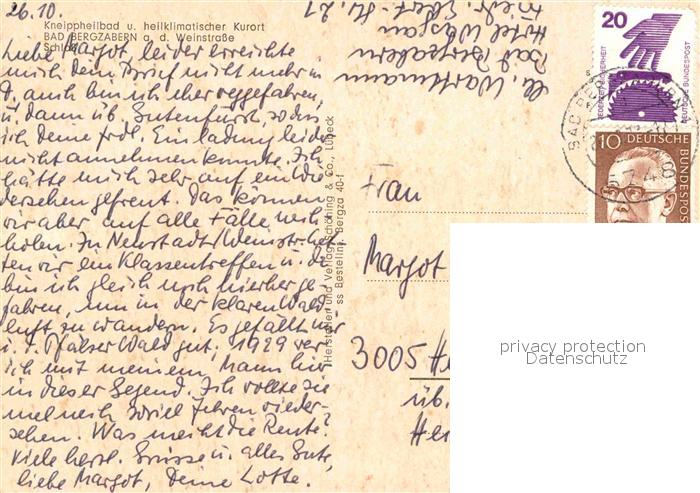 26.10.
Kneippheilbad u. heilklimatischer Kurort
BAD BERGZABERN a. d. Weinstraße
Schloß
Liebe Margot, leider erreichte
mich dein Brief nicht mehr in
D. auch bin ich eher weggefahren,
u. dann üb. Frankfurt, sodass
ich deine frdl. Einladung leider
nicht annehmen konnte. Ich
hätte mich sehr auf ein Wie
dersehen gefreut. Das können
wir aber auf alle Fälle nach
holen. In Neustadt/Weinstr. hat
ten wir ein Klassentreffen u. da
bin ich gleich noch hierher ge-
fahren, um in der klaren Wald
luft zu wandern. Es gefällt mir
i. d. Pfälzer Wald gut. 1929 war
ich mit meinem Mann hier
in dieser Gegend. Ich wollte sie
mal nach soviel Jahren wieder-
sehen. Was macht die Rente?
Viele herzl. Grüsse u. alles Gute,
liebe Margot, Deine Lotte.
Hersteller und Verlag Schöning & Co., Lübeck
ss Bestellnr. Bergza 40-f
Wartmann
Bad Bergzabern
Hotel
Friedr. Ebert-Str. 21
20
DEUTSCHE BUNDESPOST
10 DEUTSCHE
BUNDESPOST
BAD BERGZABERN
748
Frau
Margot
3005 He
üb.
He
privacy protection
Datenschutz